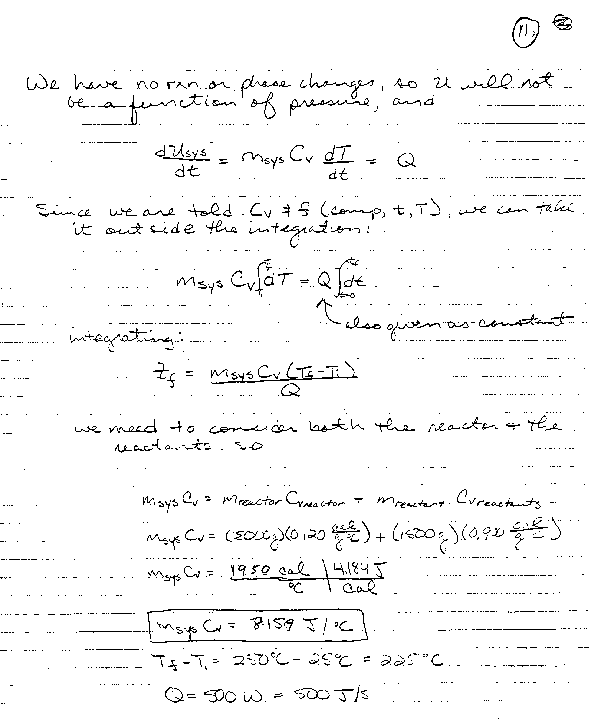 11.
We have no rxn or phase changes, so U will not
be a function of pressure, and
dUsys/dt = msys Cv dT/dt = Q
Since we are told Cv ≠ f (comp, t, T), we can take
it outside the integration:
msys Cv ∫dT = Q ∫dt
also given as constant
integrating:
tf = msys Cv (Tf - Ti) / Q
we need to consider both the reactor + the
reactants. so
msys Cv = mreactor Cvreactor + mreactant Cvreactants
msys Cv = (5000g)(0.120 cal/g °C) + (1500g)(0.900 cal/g °C)
msys Cv = 1950 cal/°C | 4.184 J/cal
msys Cv = 8159 J/°C
Tf - Ti = 250°C - 25°C = 225°C
Q = 500 W = 500 J/s